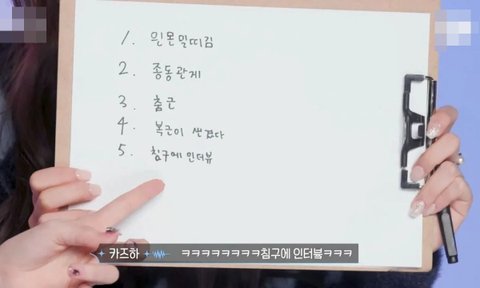 1. 윈몬밀띠김
2. 종동관게
3. 춤근
4. 복근이 싼겼다
5. 침구에 인터뷰
카즈하 ㅋㅋㅋㅋㅋㅋㅋㅋ침구에 인터뷰ㅋㅋㅋ